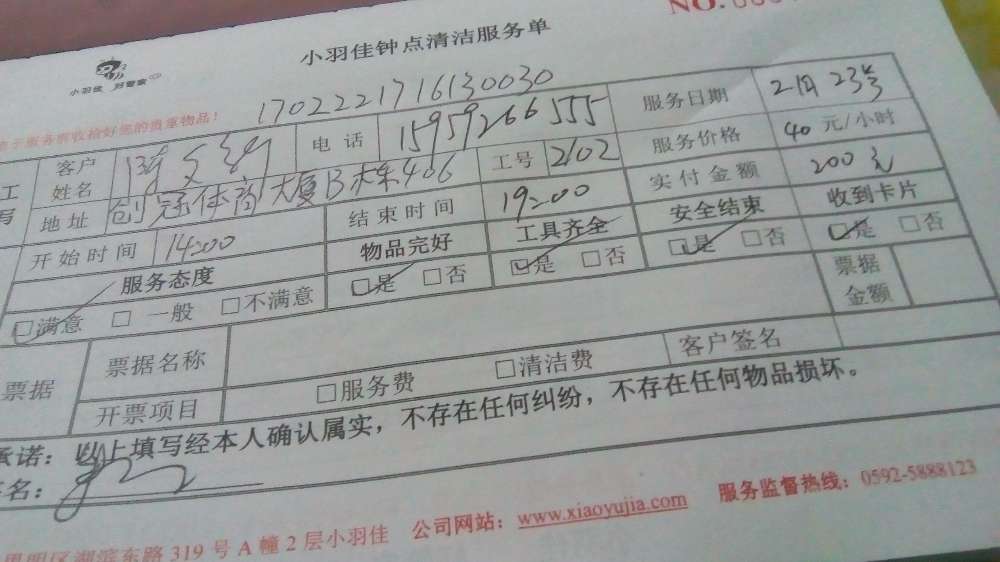 NO.
小羽佳钟点清洁服务单
小羽佳 好管家
服务前收拾好您的贵重物品！
1702221716130030
客户姓名 电话 15959266555 服务日期 2月23号
地址 创冠体商大厦B栋406 工号 2102 服务价格 40元/小时
开始时间 14:00 结束时间 19:00 实付金额 200元
服务态度 物品完好 工具齐全 安全结束 收到卡片
☑满意 □一般 □不满意 ☑是 □否 ☑是 □否 ☑是 □否 ☑是 □否
票据 票据名称 票据金额
开票项目 □服务费 □清洁费 客户签名
承诺：以上填写经本人确认属实，不存在任何纠纷，不存在任何物品损坏。
名：
明区湖滨东路319号A幢2层小羽佳 公司网站：www.xiaoyujia.com 服务监督热线：0592-5888123